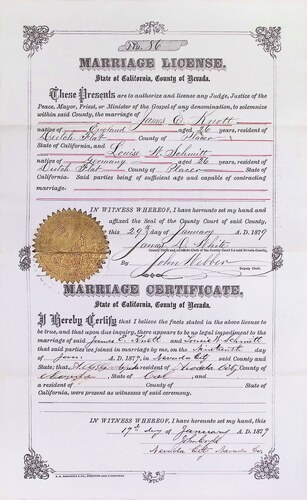 No. 86
MARRIAGE LICENSE.
State of California, County of Nevada.
These Presents are to authorize and license any Judge, Justice of the
Peace, Mayor, Priest, or Minister of the Gospel of any denomination, to solemnize
within said County, the marriage of James C. Knott
native of England aged 26 years, resident of
Dutch Flat County of Placer
State of California, and Louise W. Schmitt
native of Germany aged 26 years, resident of
Dutch Flat County of Placer State of
California. Said parties being of sufficient age and capable of contracting
marriage.
IN WITNESS WHEREOF, I have hereunto set my hand and
affixed the Seal of the County Court of said County, this
day of January A. D. 1879
James White
By John Webber
Deputy Clerk.
MARRIAGE CERTIFICATE.
State of California, County of Nevada.
I Hereby Certify that I believe the facts stated in the above license to
be true, and that upon due inquiry, there appears to be no legal impediment to the
marriage of said James C. Knott and Louise W. Schmitt
that said parties were joined in marriage by me, on the day
of Jan. A. D. 1879, in Nevada City said County and
State; that resident of Nevada City County of
Nevada, State of Cal, and
a resident of County of State of
California, were present as witnesses of said ceremony.
IN WITNESS WHEREOF, I have hereunto set my hand, this
day of January A. D. 1879
Nevada City Nevada Co.